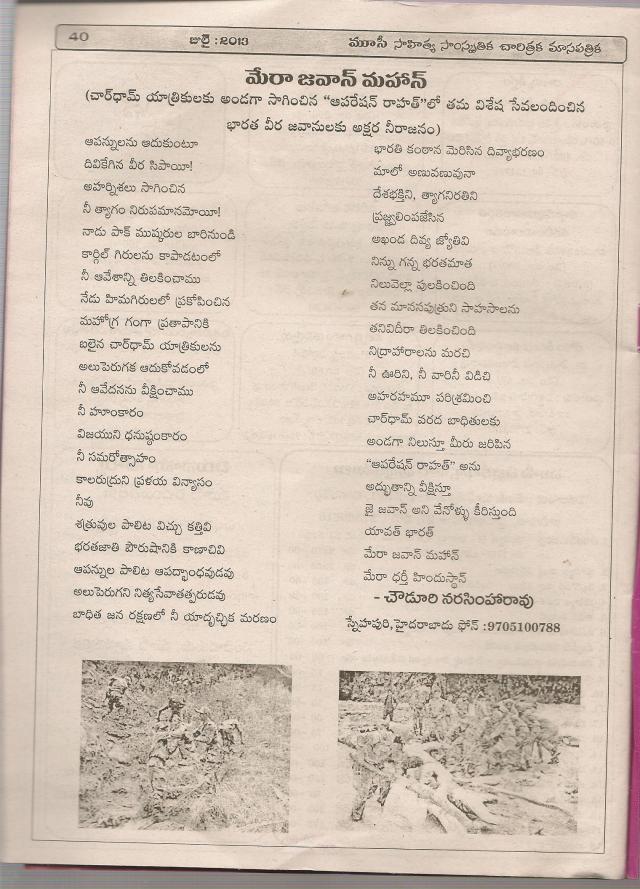 40
జులై :2013
మూసీ సాహిత్య సాంస్కృతిక చారిత్రక మాసపత్రిక
మేరా జవాన్ మహాన్
(చార్‌ధామ్ యాత్రికులకు అండగా సాగించిన "ఆపరేషన్ రాహత్"లో తమ విశేష సేవలందించిన
భారత వీర జవానులకు అక్షర నీరాజనం)
ఆపన్నులను ఆదుకుంటూ
దివికేగిన వీర సిపాయీ!
అహర్నిశలు సాగించిన
నీ త్యాగం నిరుపమానమోయీ!
నాడు పాక్ ముష్కరుల బారినుండి
కార్గిల్ గిరులను కాపాడటంలో
నీ ఆవేశాన్ని తిలకించాము
నేడు హిమగిరులలో ప్రకోపించిన
మహోగ్ర గంగా ప్రతాపానికి
బలైన చార్‌ధామ్ యాత్రికులను
అలుపెరుగక ఆదుకోవడంలో
నీ ఆవేదనను వీక్షించాము
నీ హూంకారం
విజయుని ధనుష్ఠంకారం
నీ సమరోత్సాహం
కాలరుద్రుని ప్రళయ విన్యాసం
నీవు
శత్రువుల పాలిట విచ్చు కత్తివి
భరతజాతి పౌరుషానికి కాణాచివి
ఆపన్నుల పాలిట ఆపద్బాంధవుడవు
అలుపెరుగని నిత్యసేవాతత్పరుడవు
బాధిత జన రక్షణలో నీ యాదృచ్ఛిక మరణం
భారతి కంఠాన మెరిసిన దివ్యాభరణం
మాలో అణువణువునా
దేశభక్తిని, త్యాగనిరతిని
ప్రజ్వలింపజేసిన
అఖండ దివ్య జ్యోతివి
నిన్ను గన్న భరతమాత
నిలువెల్లా పులకించింది
తన మానసపుత్రుని సాహసాలను
తనివిదీరా తిలకించింది
నిద్రాహారాలను మరచి
నీ ఊరిని, నీ వారినీ విడిచి
అహరహమూ పరిశ్రమించి
చార్‌ధామ్ వరద బాధితులకు
అండగా నిలుస్తూ మీరు జరిపిన
"ఆపరేషన్ రాహత్" అను
అద్భుతాన్ని వీక్షిస్తూ
జై జవాన్ అని వేనోళ్ళు కీరిస్తుంది
యావత్ భారత్
మేరా జవాన్ మహాన్
మేరా ధర్తీ హిందుస్థాన్
- చౌడూరి నరసింహారావు
స్నేహపురి,హైదరాబాదు ఫోన్ :9705100788